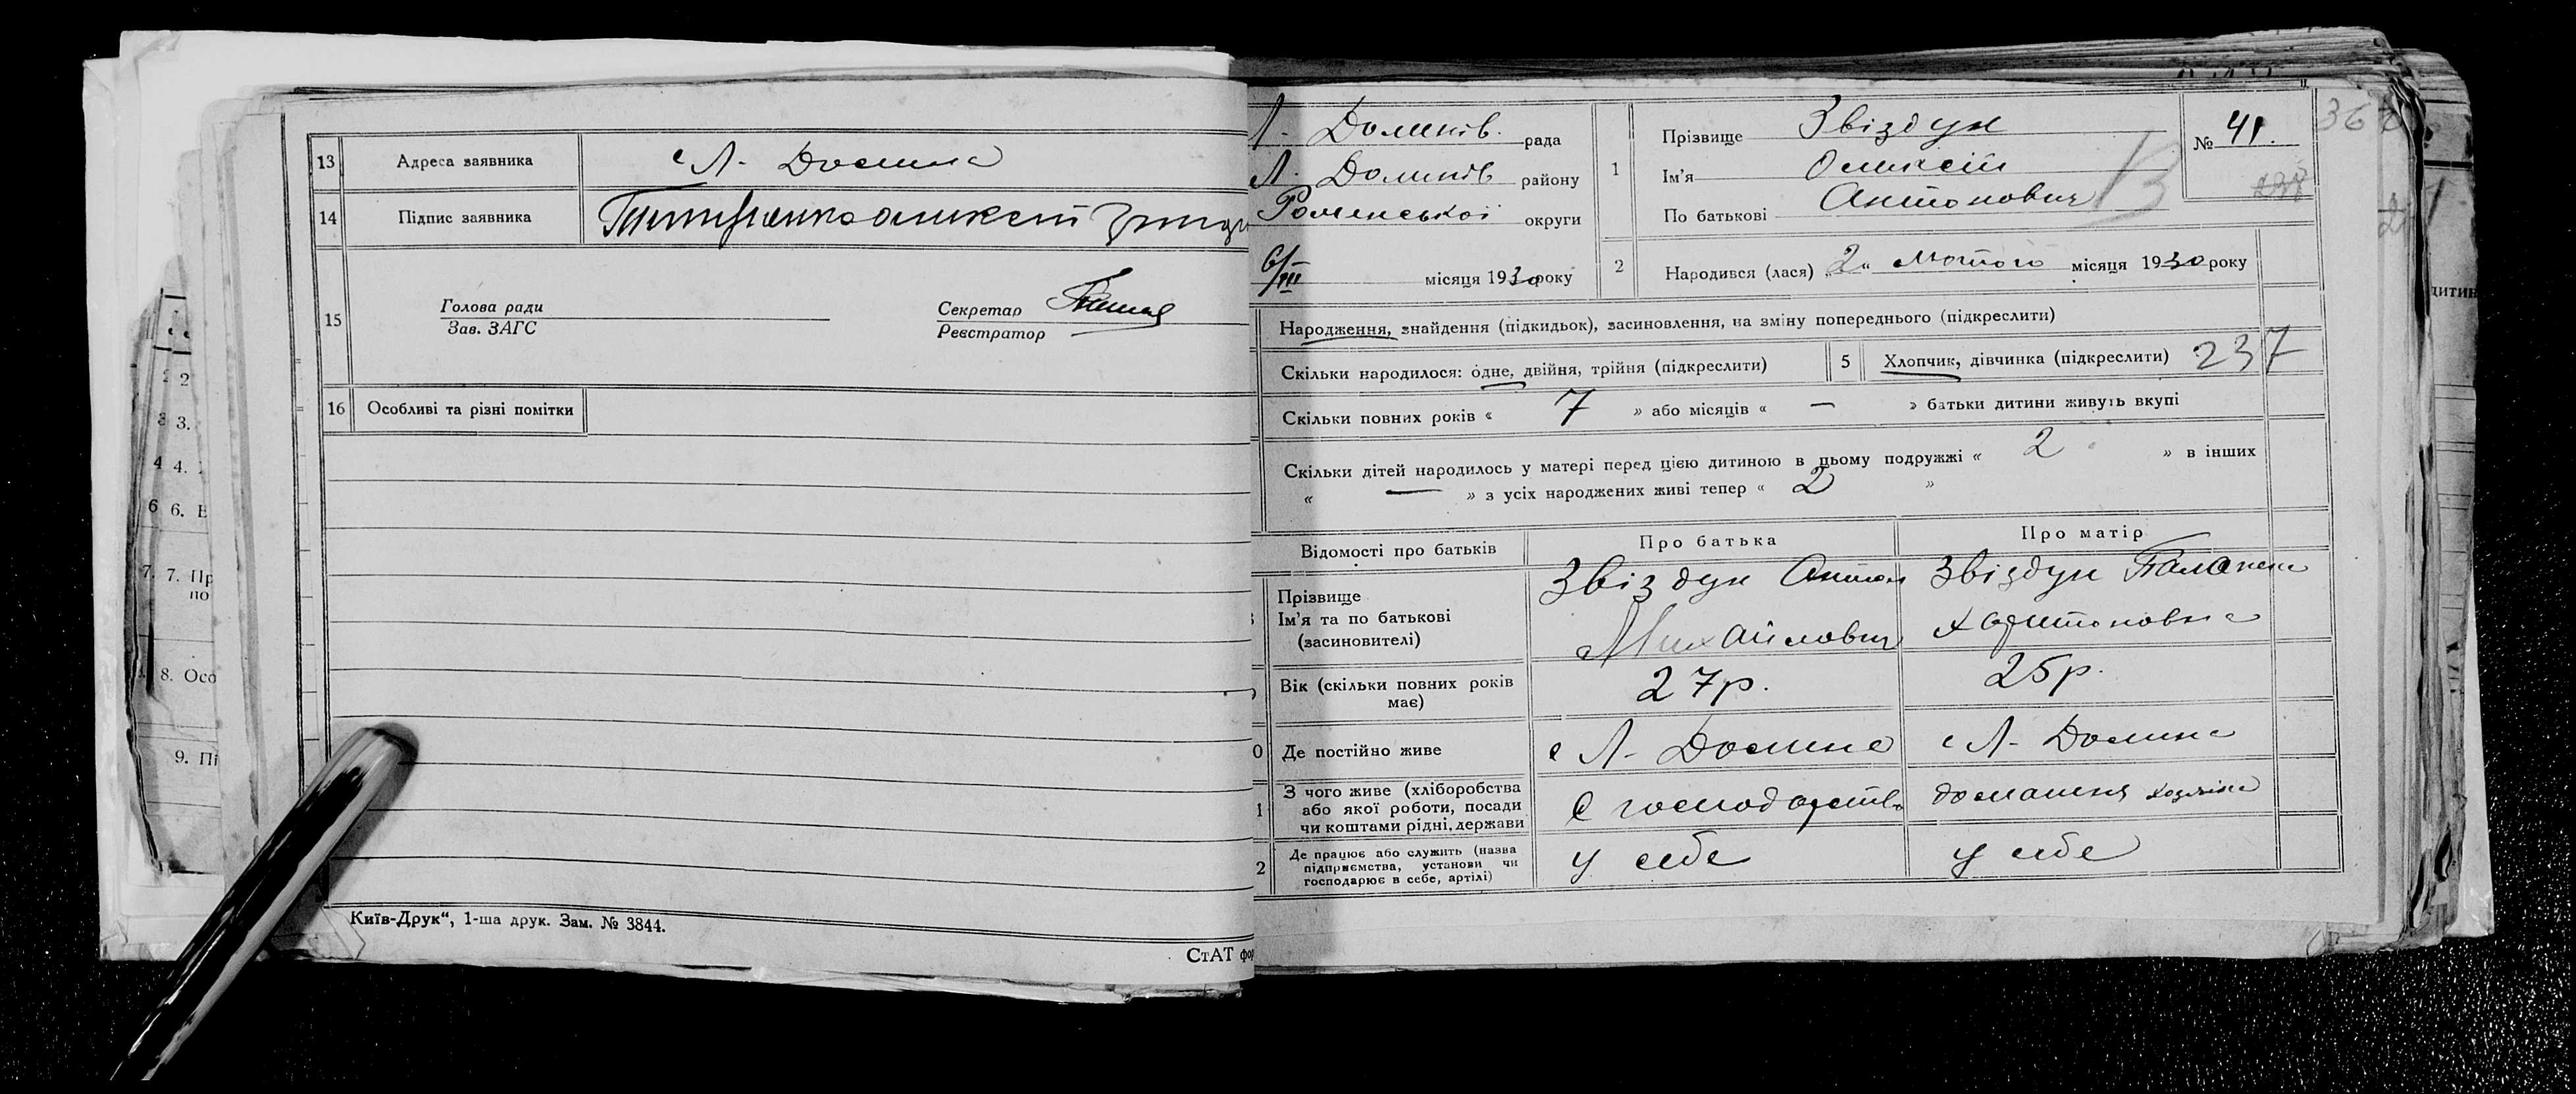 13 Адреса заявника с Л- Долина
14 Підпис заявника
15 Голова ради
Зав. ЗАГС
Секретар
Реєстратор
16 Особливі та різні помітки
Київ-Друк“, 1-ша друк. Зам. № 3844.
СтАТ фор
2
3.
4 4.
6 6. В
7. 7. Пр
по
8. Осо
9. Пі
Л. Долинів. рада
Л. Долинів району
Роменської округи
6/III місяця 1930 року
1 Прізвище Звіздун
Ім’я Олексій
По батькові Антонович
№ 41.
2 Народився (лася) „2“ Лютого місяця 1930 року
Народження, знайдення (підкидьок), засиновлення, на зміну попереднього (підкреслити)
Скільки народилося: одне, двійня, трійня (підкреслити)
5 Хлопчик, дівчинка (підкреслити) 237
Скільки повних років « 7 » або місяців « — » батьки дитини живуть вкупі
Скільки дітей народилось у матері перед цією дитиною в цьому подружжі « 2 » в інших
« — » з усіх народжених живі тепер « 2 »
Відомості про батьків Про батька Про матір
Прізвище Звіздун Антон Звіздун Палажка
Ім’я та по батькові Михайлович Харитоновна
(засиновителі)
Вік (скільки повних років має) 27р. 25р.
0 Де постійно живе с Л- Долина с Л- Долина
З чого живе (хліборобства
1 або якої роботи, посади С господарства домашня хазяйка
чи коштами рідні, держави
Де працює або служить (назва
2 підприємства, установи чи у себе у себе
господарює в себе, артілі)
дитин